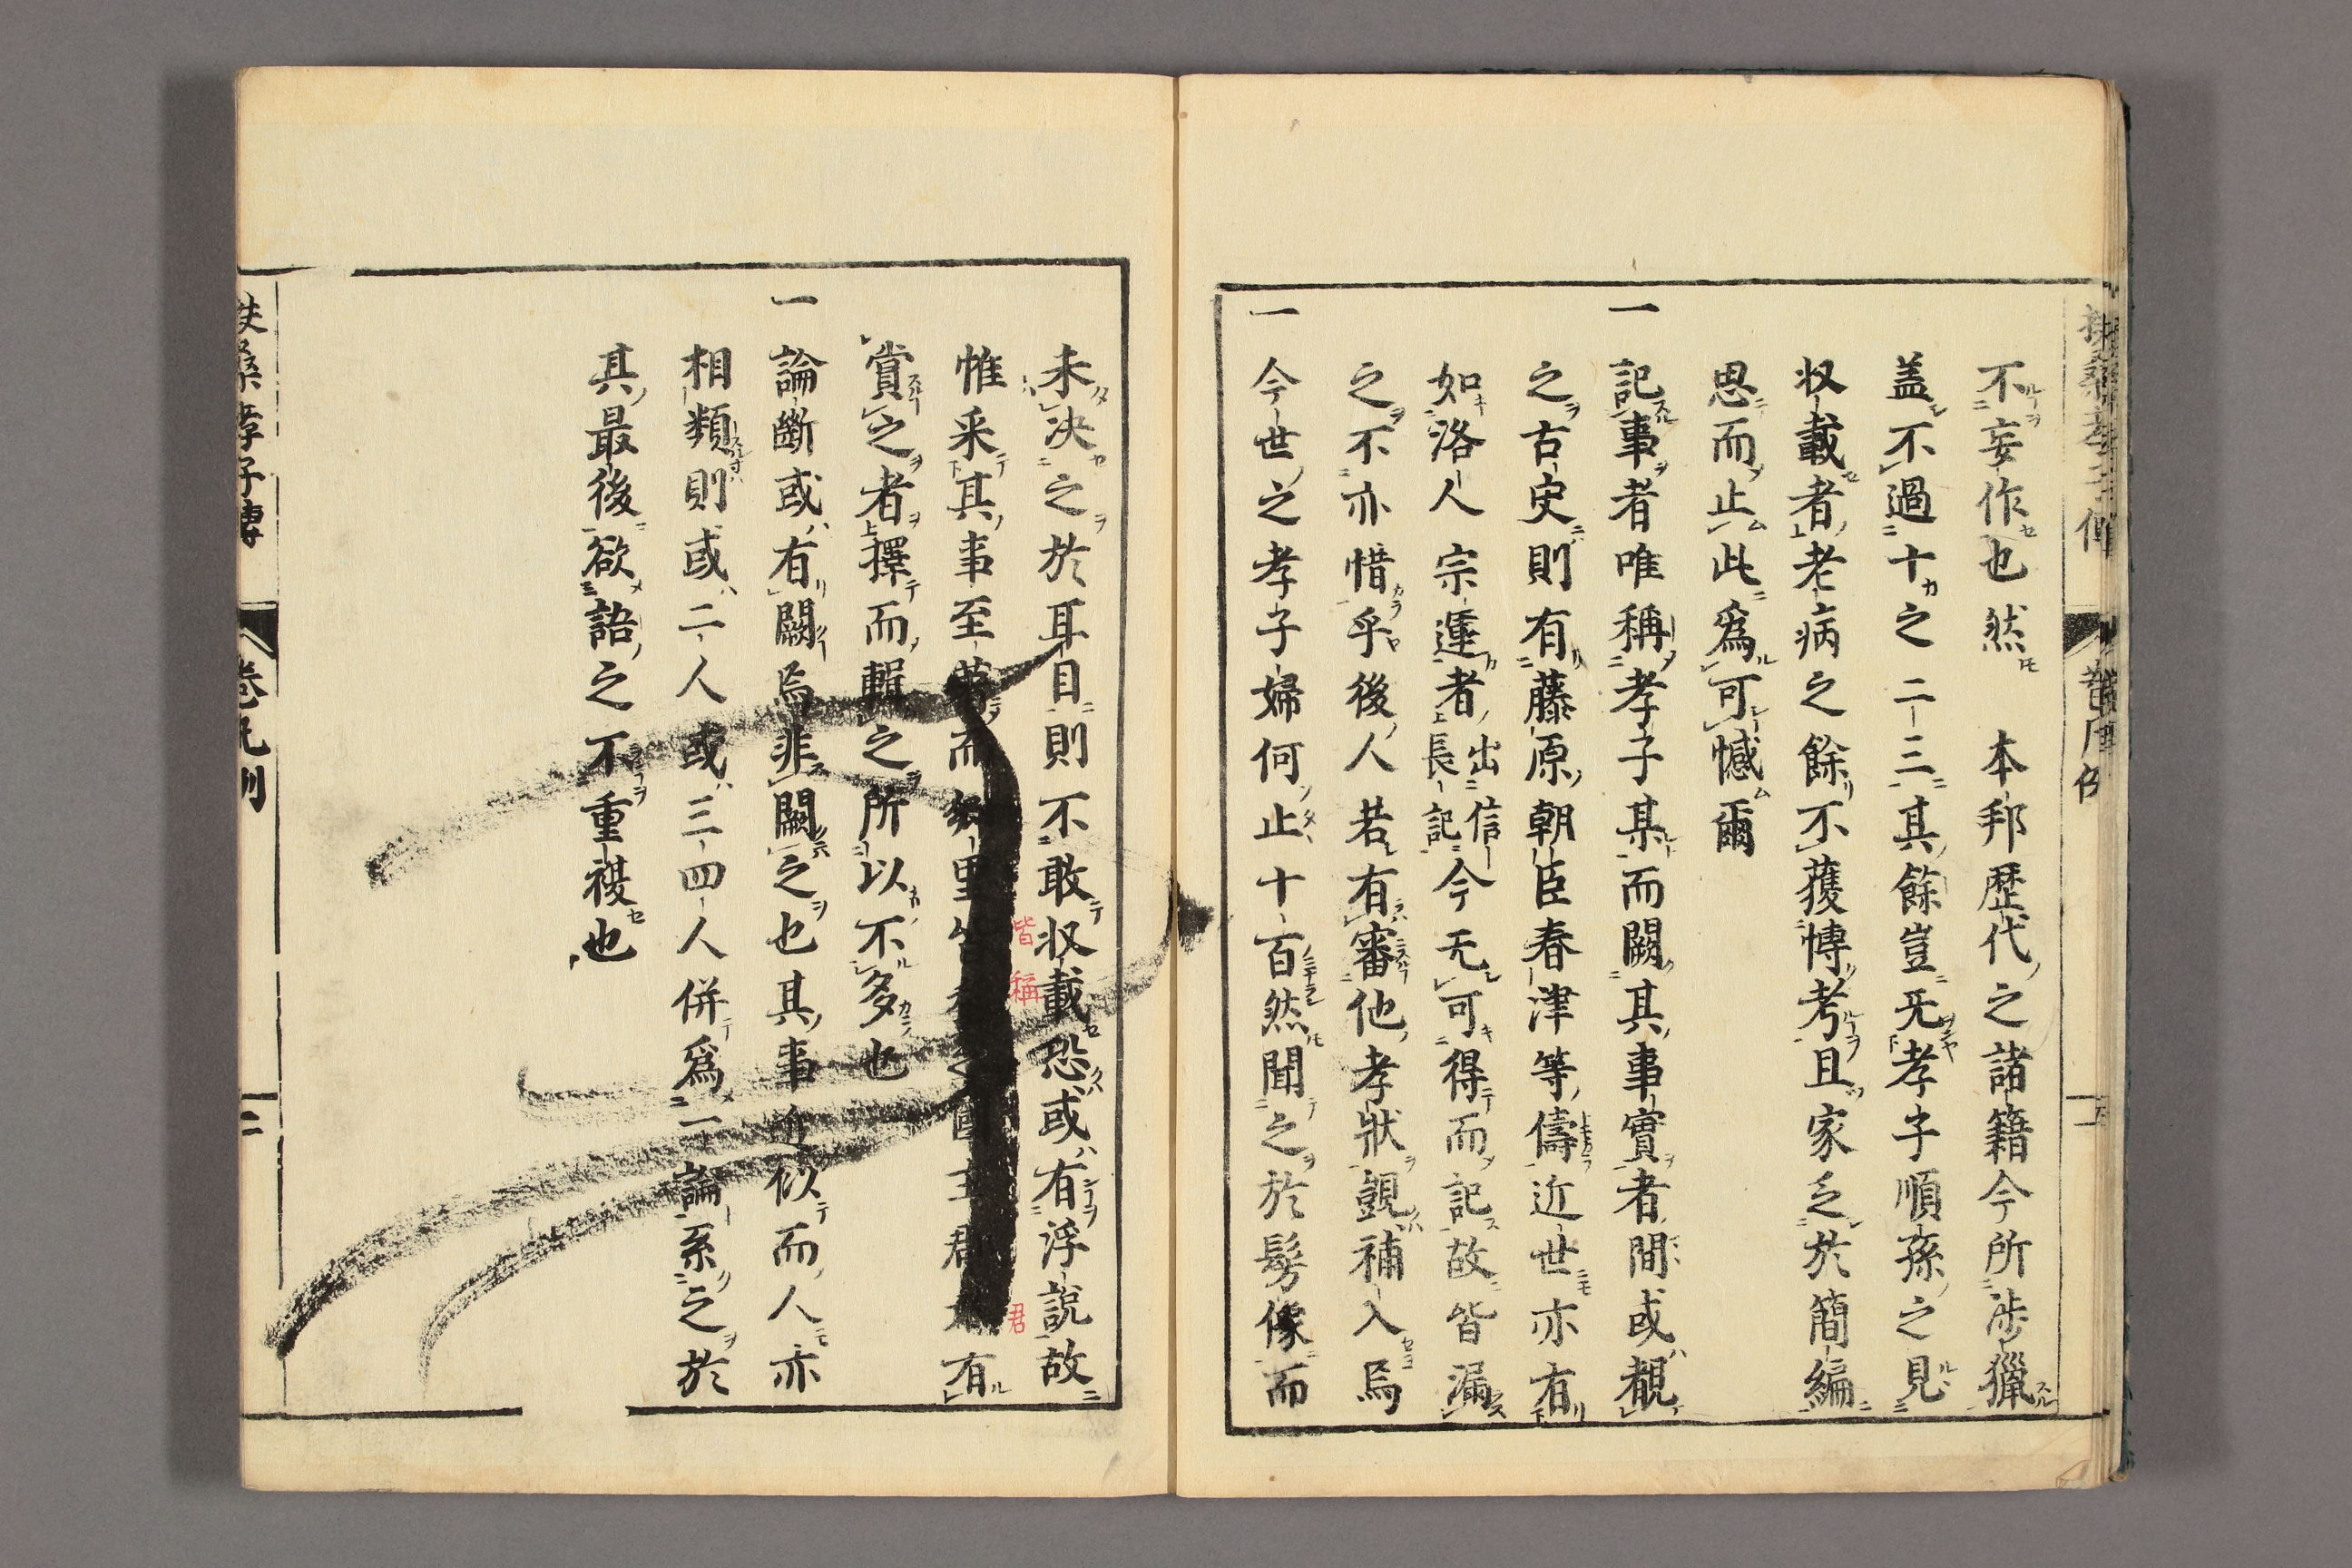 不妄作也然　本邦歴代之諸籍今所涉獵
盖不過十之二三其餘豈无孝子順孫之見
収載者老病之餘不獲博考且家乏於簡編
思而止此爲可憾爾
一記事者唯稱孝子某而闕其事實者間或覩
之古史則有藤原朝臣春津等儔近世亦有
如洛人宗運者出信長記今无可得而記故皆漏
之不亦惜乎後人若有審他孝狀覬補入焉
一今世之孝子婦何止十百然聞之於髣像而
未決之於耳目則不敢収載恐或有浮說故
惟采其事至 而鄉里皆稱之國主郡君有
賞之者擇而輯之所以不多也
一論斷或有闕焉非闕之也其事近似而人亦
相類則或二人或三四人併爲一論系之於
其最後欲語之不重複也
皆
稱
君
扶桑孝子傳
卷凡例
二